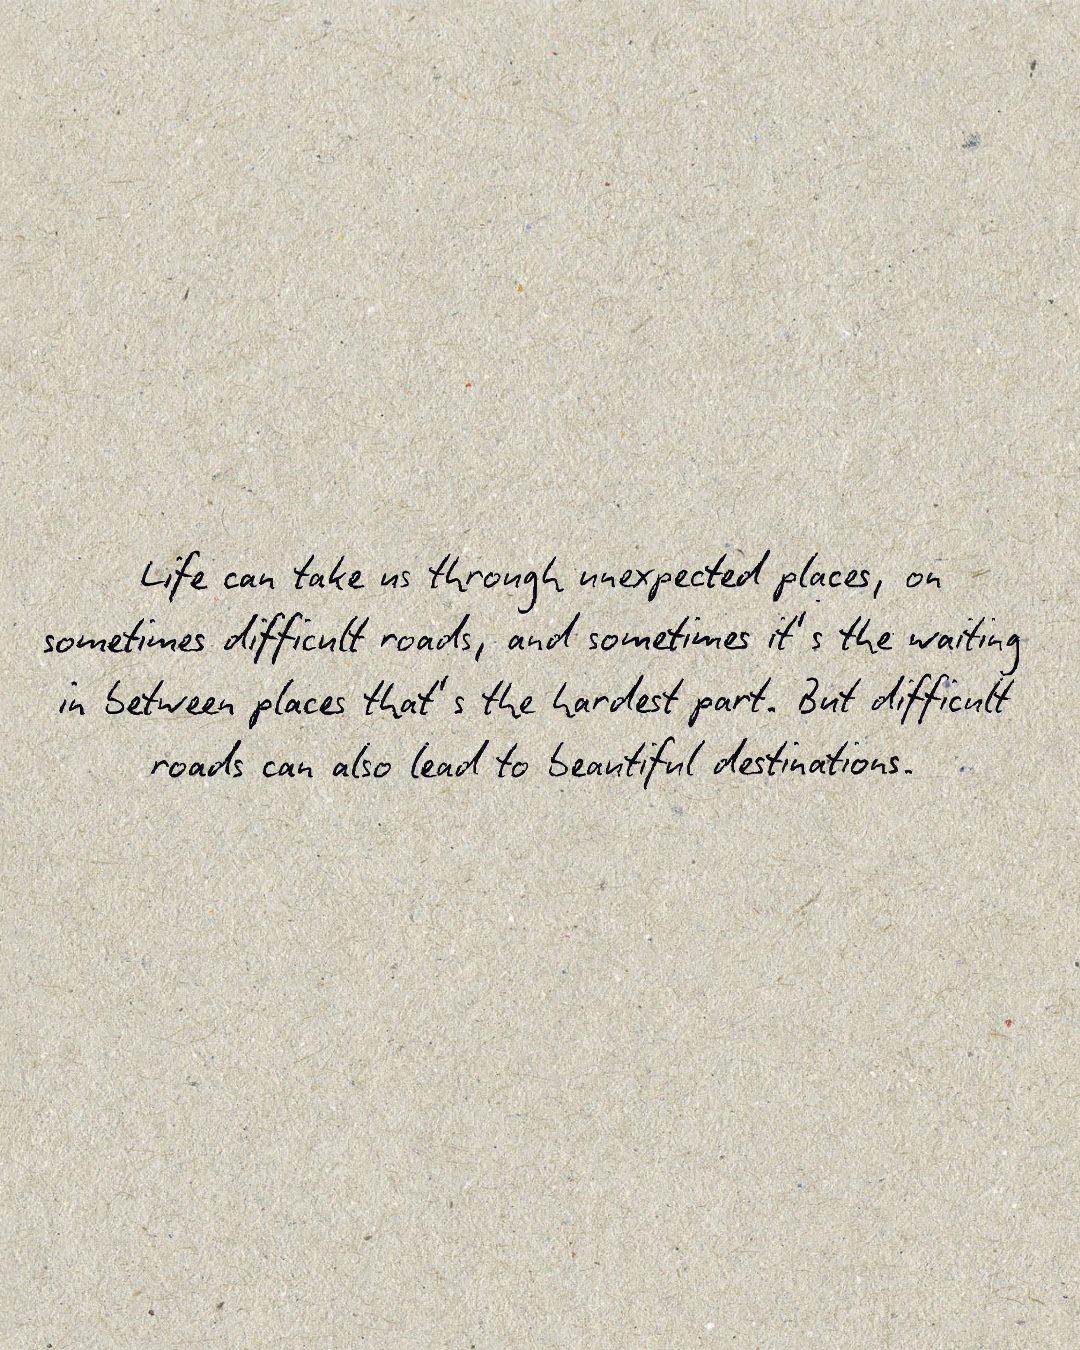 Life can take us through unexpected places, on
sometimes difficult roads, and sometimes it's the waiting
in between places that's the hardest part. But difficult
roads can also lead to beautiful destinations.